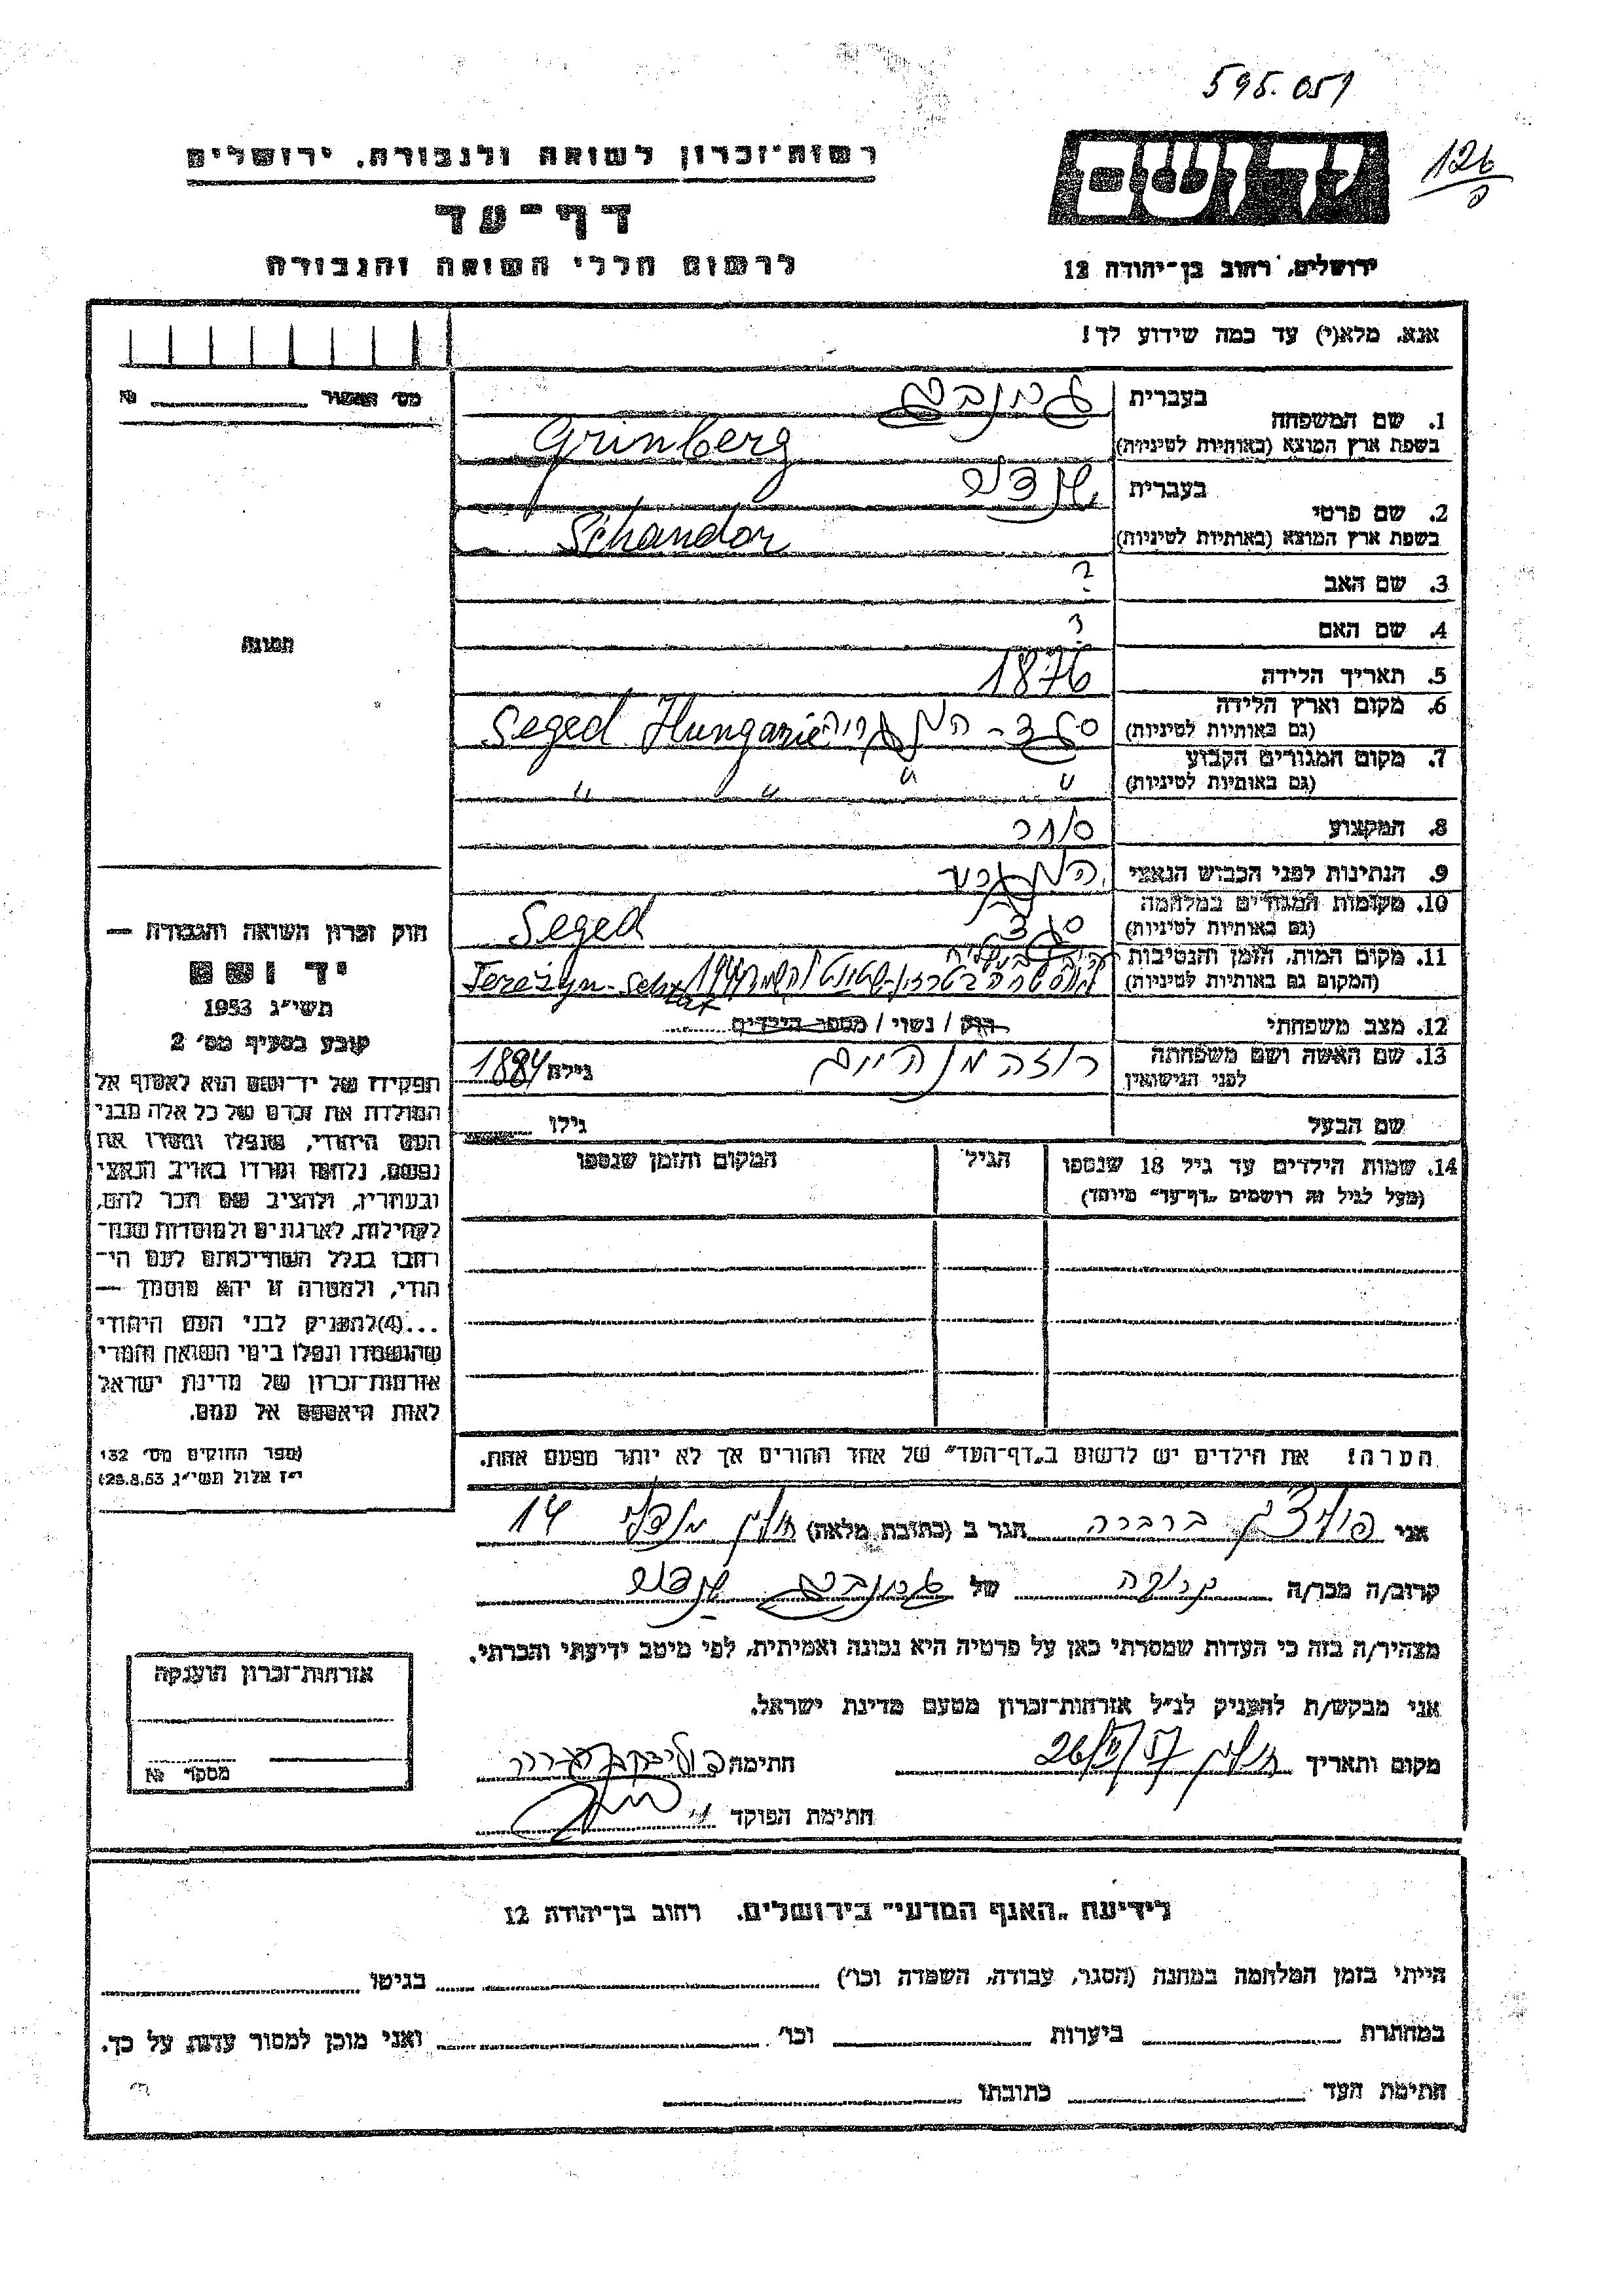 595.051
126
רשות־זכרון לשואה ולגבורה, ירושלים
יד ושם
דף־עד
לרשום חללי השואה והגבורה
ירושלים, רחוב בן־יהודה 12
אנא, מלא(י) עד כמה שידוע לך!
מס' האשור ___ №
1. שם המשפחה
בעברית גרינברג
בשפת ארץ המוצא (באותיות לטיניות) Grinberg
2. שם פרטי
בעברית
בשפת ארץ המוצא (באותיות לטיניות) Schandor
3. שם האב ?
4. שם האם ?
5. תאריך הלידה 1876
6. מקום וארץ הלידה
(גם באותיות לטיניות) סגד - הונגריה Seged Hungarie
7. מקום המגורים הקבוע
(גם באותיות לטיניות) " " " "
8. המקצוע סוחר
9. הנתינות לפני הכבוש הנאצי
10. מקומות המגורים במלחמה
(גם באותיות לטיניות) סגד Seged
11. מקום המות, הזמן והנסיבות
(המקום גם באותיות לטיניות) 1944 Terezyn-
12. מצב משפחתי רווק / נשוי / מספר הילדים
13. שם האשה ושם משפחתה
לפני הנישואין רוזה מנהיים גילה 1884
שם הבעל גילו
14. שמות הילדים עד גיל 18 שנספו
(מעל לגיל זה רושמים „דף־עד" מיוחד)
הגיל
המקום והזמן שנספו
הערה! את הילדים יש לרשום ב„דף־העד" של אחד ההורים אך לא יותר מפעם אחת.
תמונה
חוק זכרון השואה והגבורה —
יד ושם
תשי"ג 1953
קובע בסעיף מס' 2
תפקידו של יד־ושם הוא לאסוף אל
המולדת את זכרם של כל אלה מבני
העם היהודי, שנפלו ומסרו את
נפשם, נלחמו ומרדו באויב הנאצי
ובעוזריו, ולהציב שם וזכר להם,
לקהילות, לארגונים ולמוסדות שנח־
רבו בגלל השתייכותם לעם הי־
הודי, ולמטרה זו יהא מוסמך —
...(4) להעניק לבני העם היהודי
שהושמדו ונפלו בימי השואה והמרי
אזרחות־זכרון של מדינת ישראל
לאות היאספם אל עמם.
(ספר החוקים מס' 132
י"ז אלול תשי"ג 28.8.53)
אני ברברה הגר ב (כתובת מלאה) חולון 14
קרוב/ה מכר/ה קרובה של גרינברג
מצהיר/ה בזה כי העדות שמסרתי כאן על פרטיה היא נכונה ואמיתית, לפי מיטב ידיעתי והכרתי.
אני מבקש/ת להעניק לנ"ל אזרחות־זכרון מטעם מדינת ישראל.
מקום ותאריך חולון 26/ /57 חתימה
חתימת הפוקד
אזרחות־זכרון הוענקה
מספר №
לידיעת „האגף המדעי" בירושלים, רחוב בן־יהודה 12
הייתי בזמן המלחמה במחנה (הסגר, עבודה, השמדה וכו') בגיטו
במחתרת ביערות וכו' ואני מוכן למסור עדות על כך.
חתימת העד כתובתו